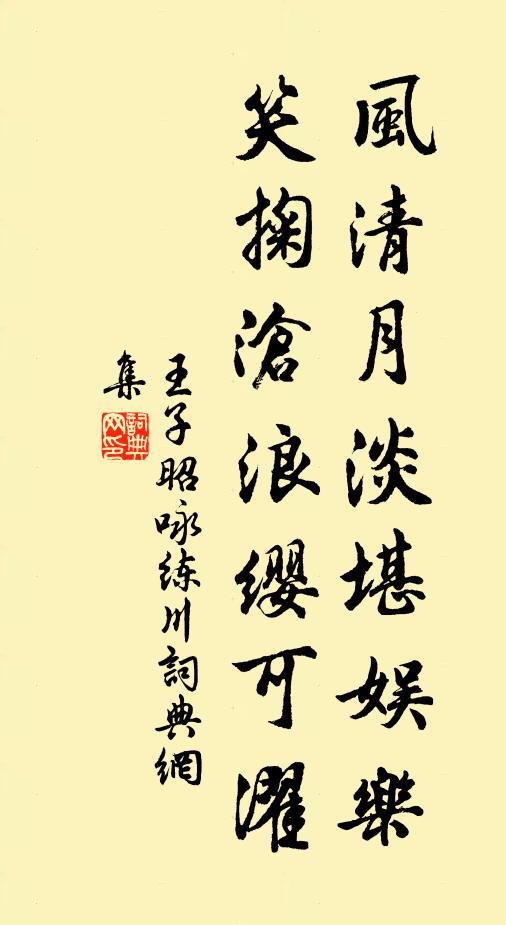 風清月淡堪娛樂
笑掬滄浪纓可濯
王子昭咏練川詞典網
集
詞典網印